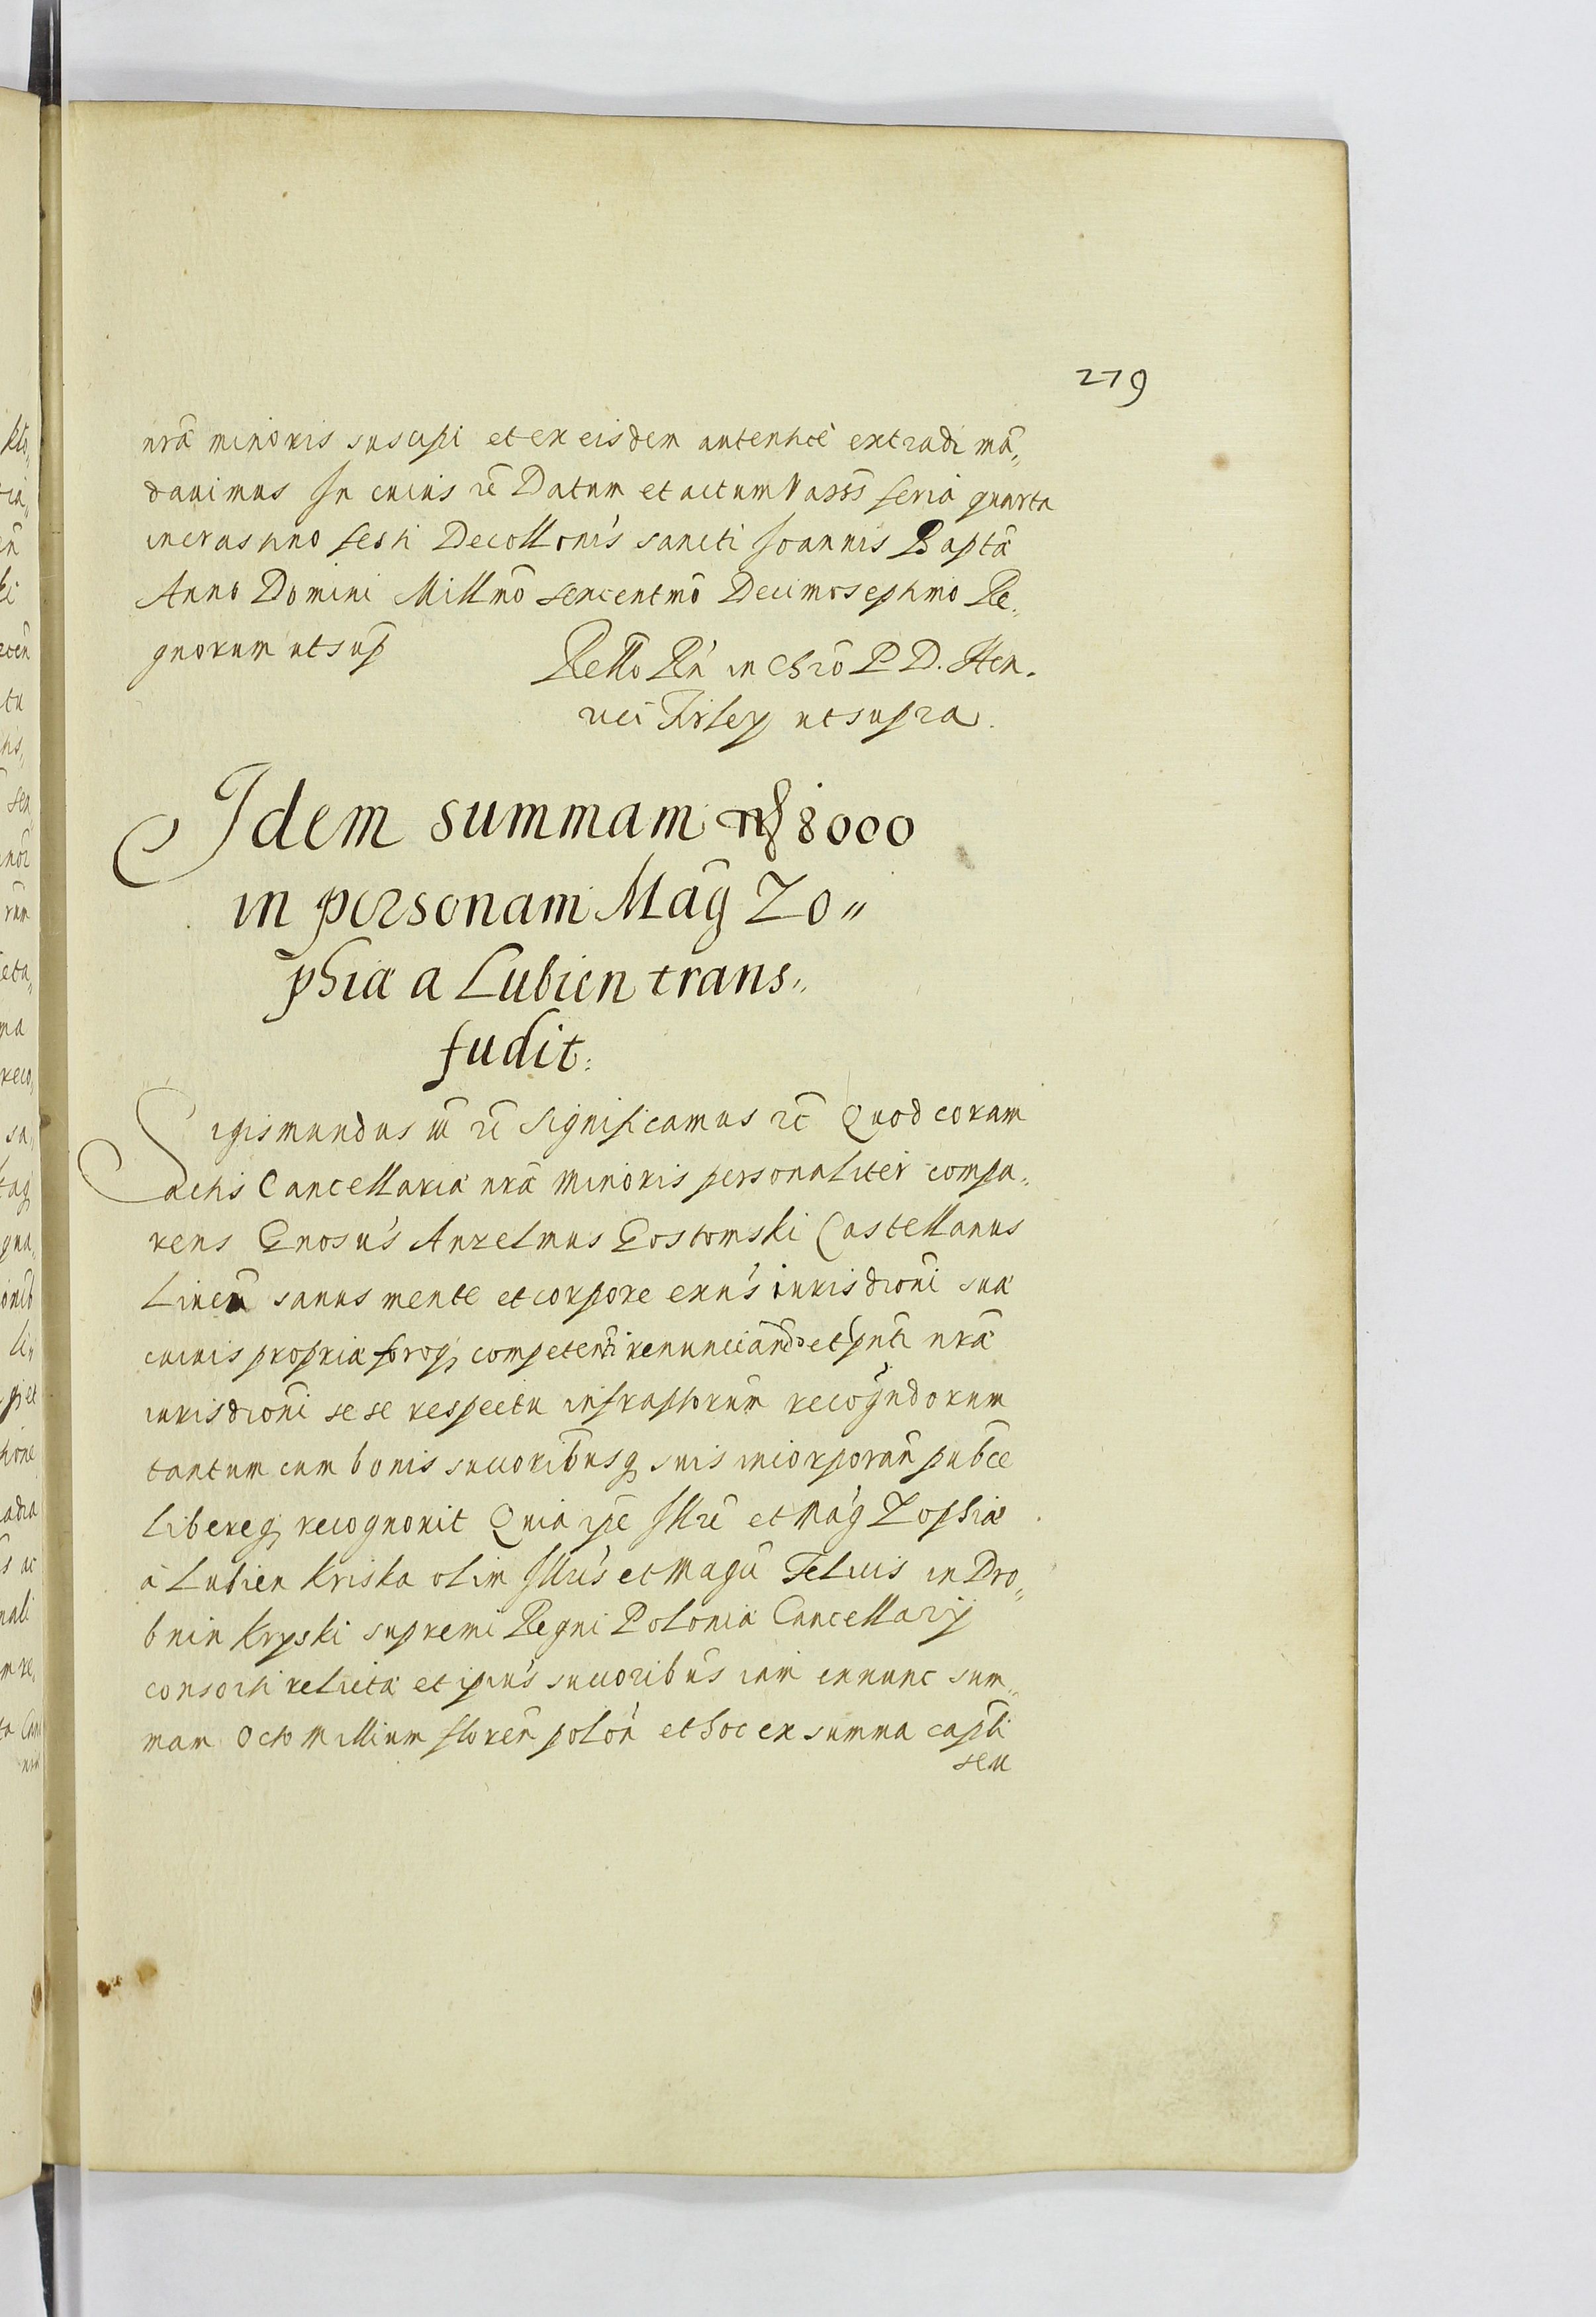 279
nrã minoris suscipi et ex eisdem autenticè extradi mã„
davimus In cuius rẽ Datum et actum Varss feria quarta
incrastino festi Decollonis sancti Joannis Baptã
Anno Domini Millmõ sexcentmõ Decimoseptimo Re„
gnorum ut sup
Rello Rñ in Chro P D. Hen„
rici Firley ut supra.
Idem summam 8000
in personam Mag Zo„
phiæ a Lubien trans„
fudit:
Sigismundus iii rẽ Significamus rẽ Quod coram
actis Cancellariæ nrã minoris personaliter compa„
rens Gnosus Anzelmus Gostomski Castellanus
sanus mente et corpore exns iurisdioni suæ
cuiuis propriæ foroq competenti renunciando et pnti nrã
iurisdioni sese respectu infraptorum recogndorum
tantum cum bonis succoribusq suis incorporan pubce
libereq recognovit Quia ipe Illri et Mag Zophiæ
à Lubien Kriska olim Illris et Magci Felicis in Dro„
bnin Kryski supremi Regni Poloniæ Cancellarij
consorti relictæ et ipius succoribus iam exnunc sum„
mam Octo millium floren polon et hoc ex summa capli
seu